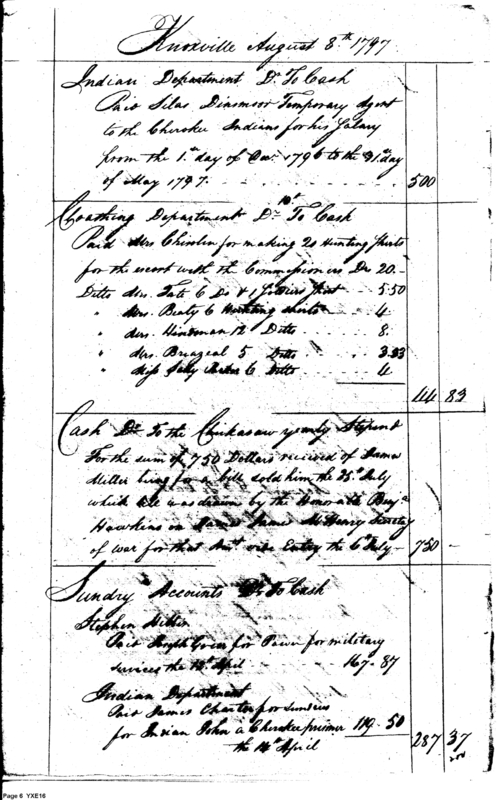 Knoxville August 8th 1797
Indian Department Dr. To Cash
Paid Silas Dinsmoor Temporary Agent
to the Cherokee Indians for his Salary
from the 1st day of Decr. 1796 to the 31st day
of May 1797. 500
10th
Cloathing Department Dr. To Cash
Paid Mrs. for making 20 Hunting Shirts
for the escort with the Commissioners Drs 20.-
Ditto Mrs. Tate 6 Do & 1 5.50
" Mrs. Beaty 6 Hunting shirts 4
" Mrs. Hindman 12 Ditto 8.
" Mrs. 5 Ditto 3.33
" Miss Sally 6 Ditto 4
44 83
Cash Dr. To the Chikasaw yearly Stepend
For the sum of 750 Dollars received of James
Miller being for a bill sold him the 25th July
which bill was drawn by the Honorable Benjn.
Hawkins on James McHenry Secretary
of war for that Amt. vide Entry the 6th July - 750 -
Sundry Accounts Dr. To Cash
Stephen
Paid Joseph for Power for military
services the April 167.87
Indian Department
Paid James for sundries
for Indian John a Cherokee prisoner 119.50
the 14th April
287 37
Page 6 YXE16